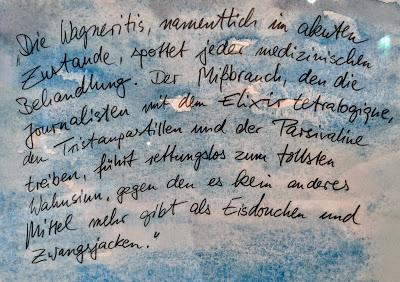 „Die Wagneritis, namentlich im akuten
Zustande, spottet jeder medizinischen
Behandlung. Der Mißbrauch, den die
Journalisten mit dem Elixir tetralogique,
den Tristanpastillen und der Parsivaline
treiben, führt rettungslos zum tollsten
Wahnsinn, gegen den es kein anderes
Mittel mehr gibt als Eisdouchen und
Zwangsjacken."